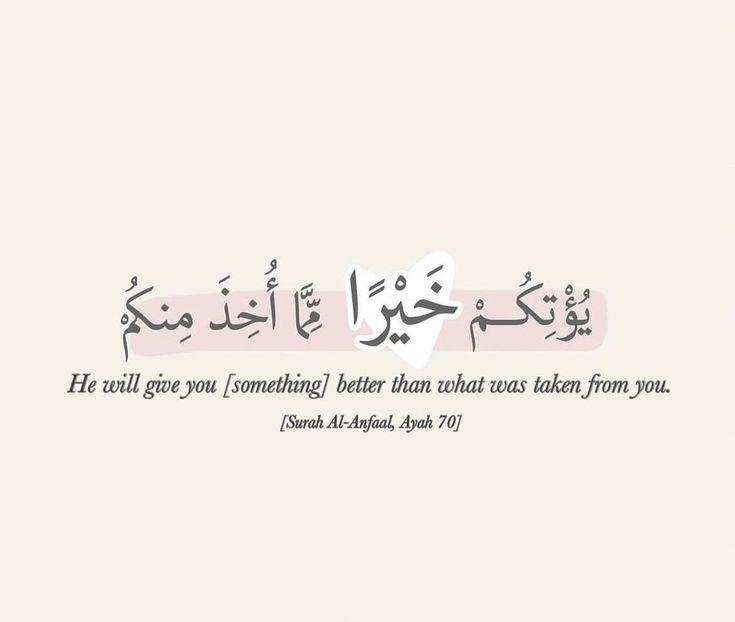 يُؤْتِكُمْ خَيْرًا مِّمَّا أُخِذَ مِنكُمْ
He will give you [something] better than what was taken from you.
[Surah Al-Anfaal, Ayah 70]